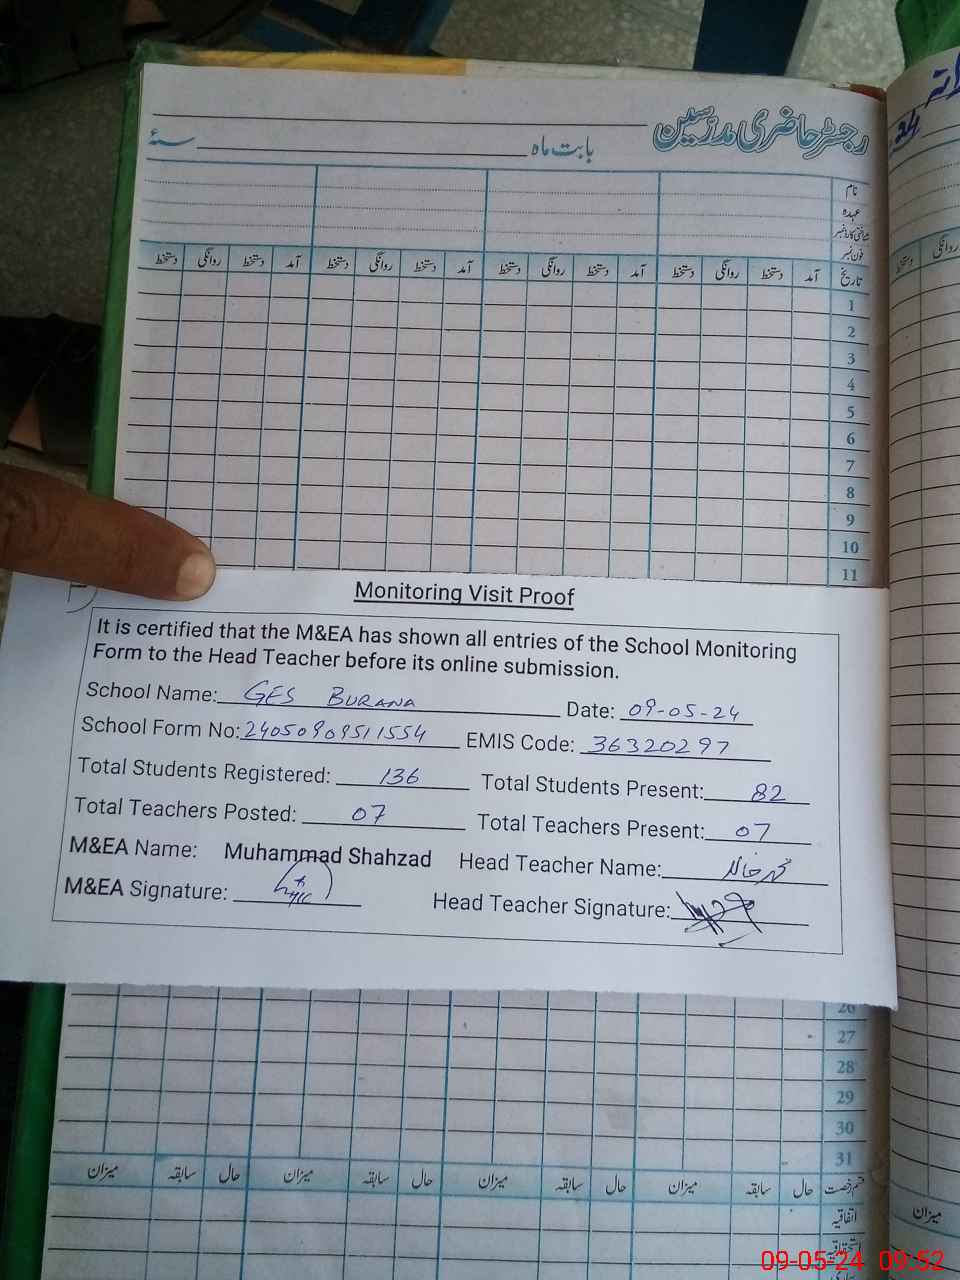 رجسٹر حاضری مدرسین
بابت ماہ ـــــــــ سنۂ
نام
عہدہ
شناختی کارڈ نمبر
فون نمبر
تاریخ آمد دستخط روانگی دستخط آمد دستخط روانگی دستخط آمد دستخط روانگی دستخط آمد دستخط روانگی دستخط
روانگی دستخط
1
2
3
4
5
6
7
8
9
10
11
Monitoring Visit Proof
It is certified that the M&EA has shown all entries of the School Monitoring
Form to the Head Teacher before its online submission.
School Name: GES BURANA Date: 09-05-24
School Form No: 24050909511554 EMIS Code: 36320297
Total Students Registered: 136 Total Students Present: 82
Total Teachers Posted: 07 Total Teachers Present: 07
M&EA Name: Muhammad Shahzad Head Teacher Name: محمد خالد
M&EA Signature: Head Teacher Signature:
26
27
28
29
30
31
قسم رخصت حال سابقہ میزان حال سابقہ میزان حال سابقہ میزان حال سابقہ میزان
اتفاقیہ میزان
استحقاقیہ
09-05-24 09:52